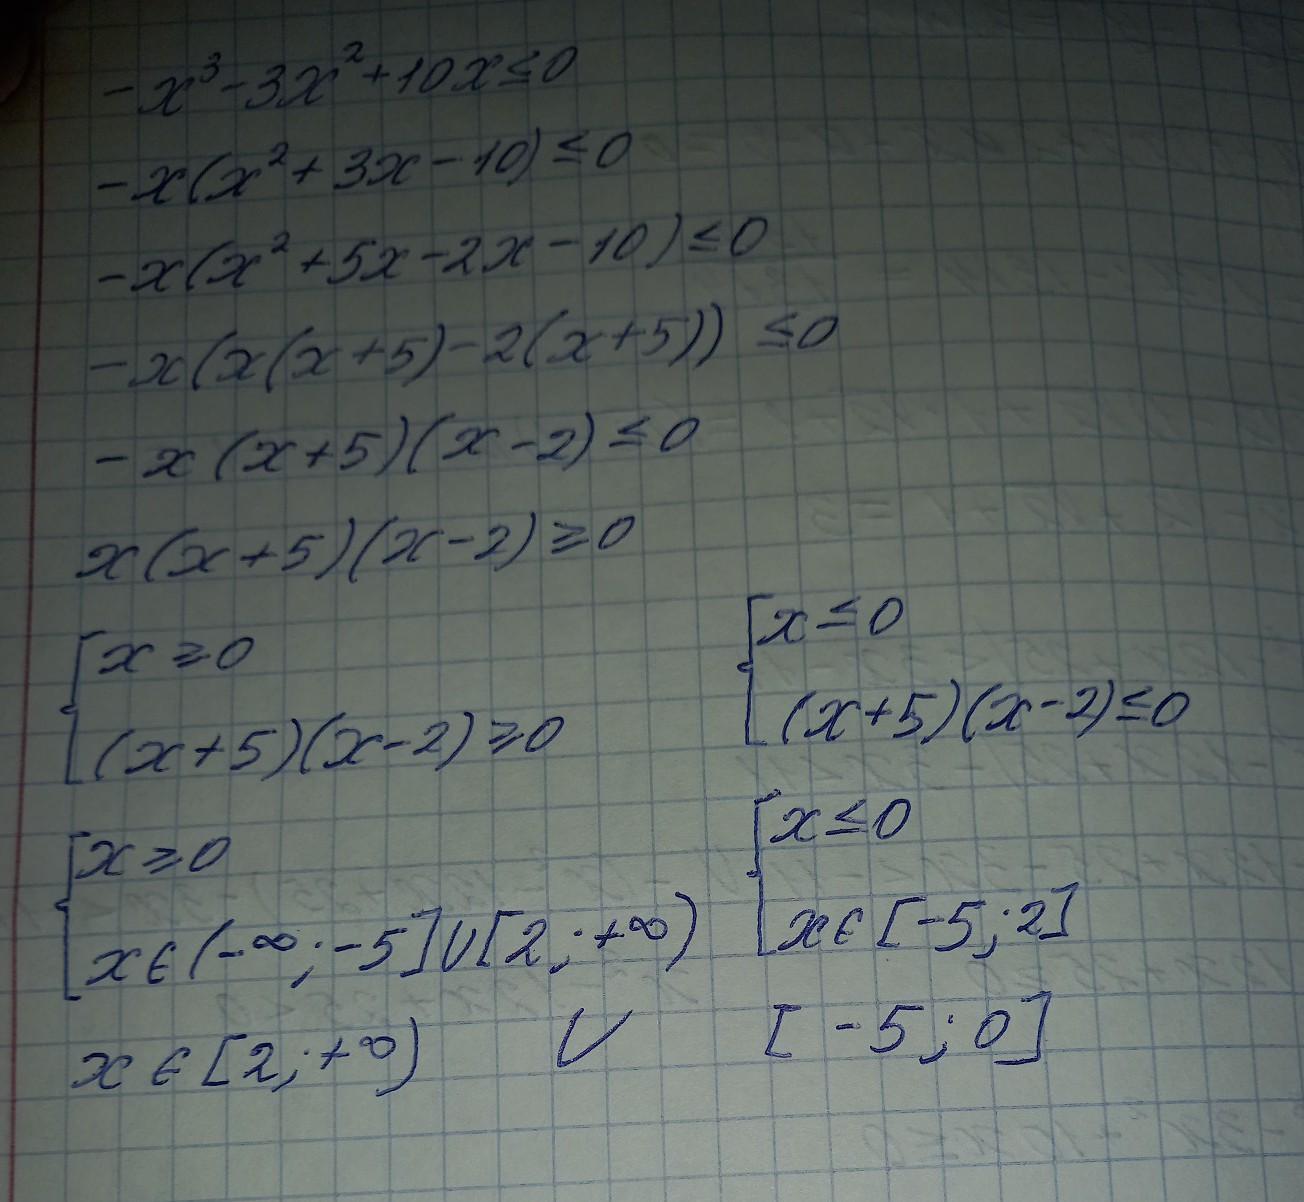 -x³-3x²+10x≤0
-x(x²+3x-10)≤0
-x(x²+5x-2x-10)≤0
-x(x(x+5)-2(x+5)) ≤0
-x(x+5)(x-2)≤0
x(x+5)(x-2)≥0
{x≥0
(x+5)(x-2)≥0
{x≤0
(x+5)(x-2)≤0
{x≥0
x∈(-∞;-5]∪[2;+∞)
{x≤0
x∈[-5;2]
x∈[2;+∞) ∪ [-5;0]